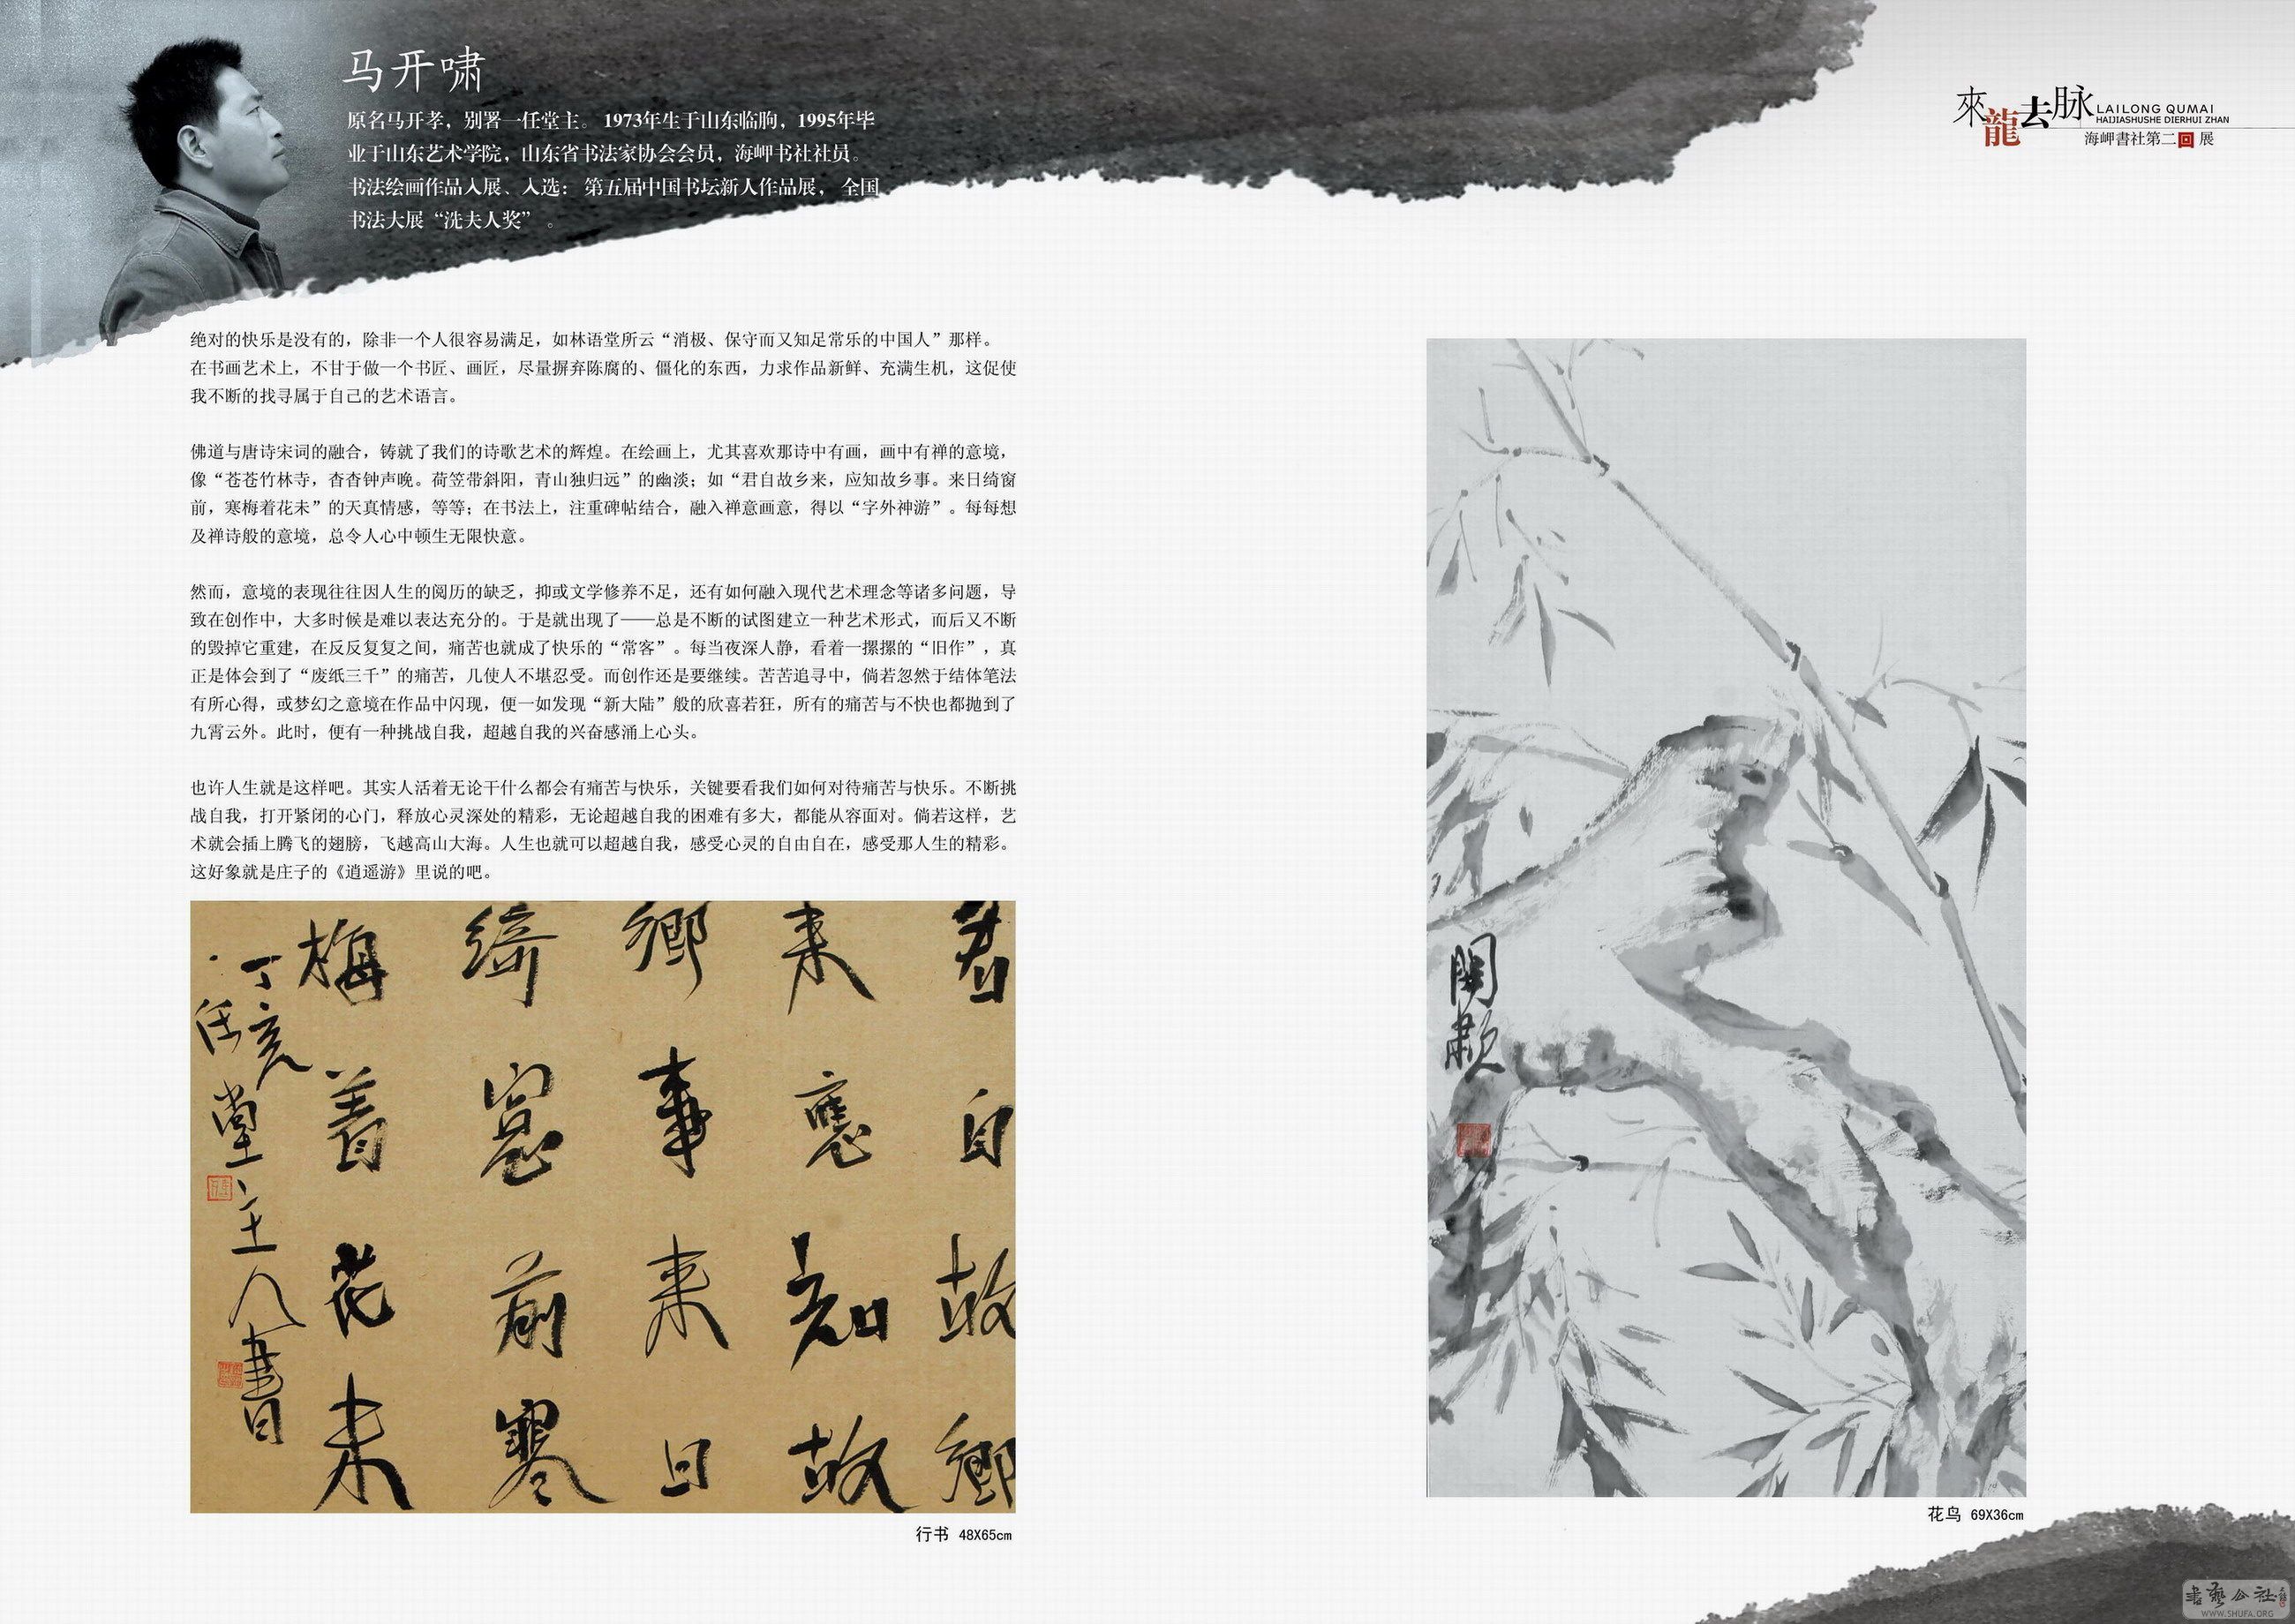 马开啸
原名马开孝，别署一任堂主。 1973年生于山东临朐，1995年毕
业于山东艺术学院，山东省书法家协会会员，海岬书社社员。
书法绘画作品入展、入选： 第五届中国书坛新人作品展， 全国
书法大展“冼夫人奖” 。
來龍去脉
LAILONG QUMAI
HAIJIASHUSHE DIERHUI ZHAN
海岬書社第二回展
绝对的快乐是没有的，除非一个人很容易满足，如林语堂所云“消极、保守而又知足常乐的中国人”那样。
在书画艺术上，不甘于做一个书匠、画匠，尽量摒弃陈腐的、僵化的东西，力求作品新鲜、充满生机，这促使
我不断的找寻属于自己的艺术语言。
佛道与唐诗宋词的融合，铸就了我们的诗歌艺术的辉煌。在绘画上，尤其喜欢那诗中有画，画中有禅的意境，
像“苍苍竹林寺，杳杳钟声晚。荷笠带斜阳，青山独归远”的幽淡；如“君自故乡来，应知故乡事。来日绮窗
前，寒梅着花未”的天真情感，等等；在书法上，注重碑帖结合，融入禅意画意，得以“字外神游”。每每想
及禅诗般的意境，总令人心中顿生无限快意。
然而，意境的表现往往因人生的阅历的缺乏，抑或文学修养不足，还有如何融入现代艺术理念等诸多问题，导
致在创作中，大多时候是难以表达充分的。于是就出现了——总是不断的试图建立一种艺术形式，而后又不断
的毁掉它重建，在反反复复之间，痛苦也就成了快乐的“常客”。每当夜深人静，看着一摞摞的“旧作”，真
正是体会到了“废纸三千”的痛苦，几使人不堪忍受。而创作还是要继续。苦苦追寻中，倘若忽然于结体笔法
有所心得，或梦幻之意境在作品中闪现，便一如发现“新大陆”般的欣喜若狂，所有的痛苦与不快也都抛到了
九霄云外。此时，便有一种挑战自我，超越自我的兴奋感涌上心头。
也许人生就是这样吧。其实人活着无论干什么都会有痛苦与快乐，关键要看我们如何对待痛苦与快乐。不断挑
战自我，打开紧闭的心门，释放心灵深处的精彩，无论超越自我的困难有多大，都能从容面对。倘若这样，艺
术就会插上腾飞的翅膀，飞越高山大海。人生也就可以超越自我，感受心灵的自由自在，感受那人生的精彩。
这好象就是庄子的《逍遥游》里说的吧。
君自故鄉
来應知故
鄉事来日
綺窗前寒
梅着花未
丁亥
一任堂主人書
行书 48X65cm
花鸟 69X36cm
書藝公社
WWW.SHUFA.ORG